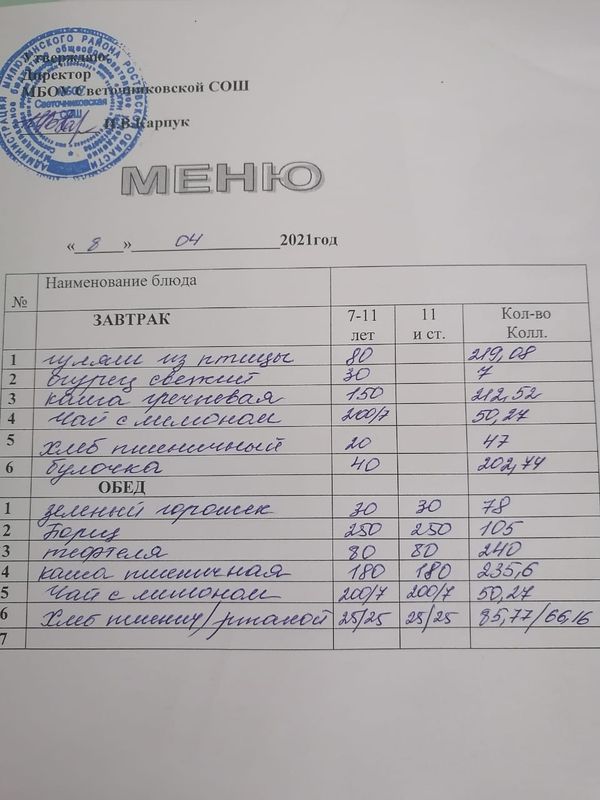 Утверждаю:
Директор
МБОУ Светочниковской СОШ
Н.В.Карпук
МЕНЮ
« 8 » 04 2021год
№ Наименование блюда
ЗАВТРАК 7-11 лет 11 и ст. Кол-во Колл.
1 гуляш из птицы 80 219,08
2 огурец свежий 30 7
3 каша гречневая 150 212,52
4 Чай с лимоном 200/7 50,27
5 Хлеб пшеничный 20 47
6 булочка 40 202,74
ОБЕД
1 зеленый горошек 30 30 78
2 Борщ 250 250 105
3 тефтеля 80 80 240
4 каша пшеничная 180 180 235,6
5 Чай с лимоном 200/7 200/7 50,27
6 Хлеб пшенич/ржаной 25/25 25/25 85,77/66,16
7